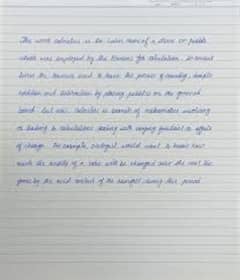 The word calculus is the Latin name of a stone or pebble
which was employed by the Romans for calculation. In ancient
times the Romans used to have the process of counting, simple
addition and subtraction by placing pebbles on the ground
board but now, calculus is branch of mathematics involving
or leading to calculations dealing with varying quantities or effects
of change. For example, biologist would want to know how
much the acidity of a lake will be changed over the next ten
years by the acid content of the rainfall during this period.